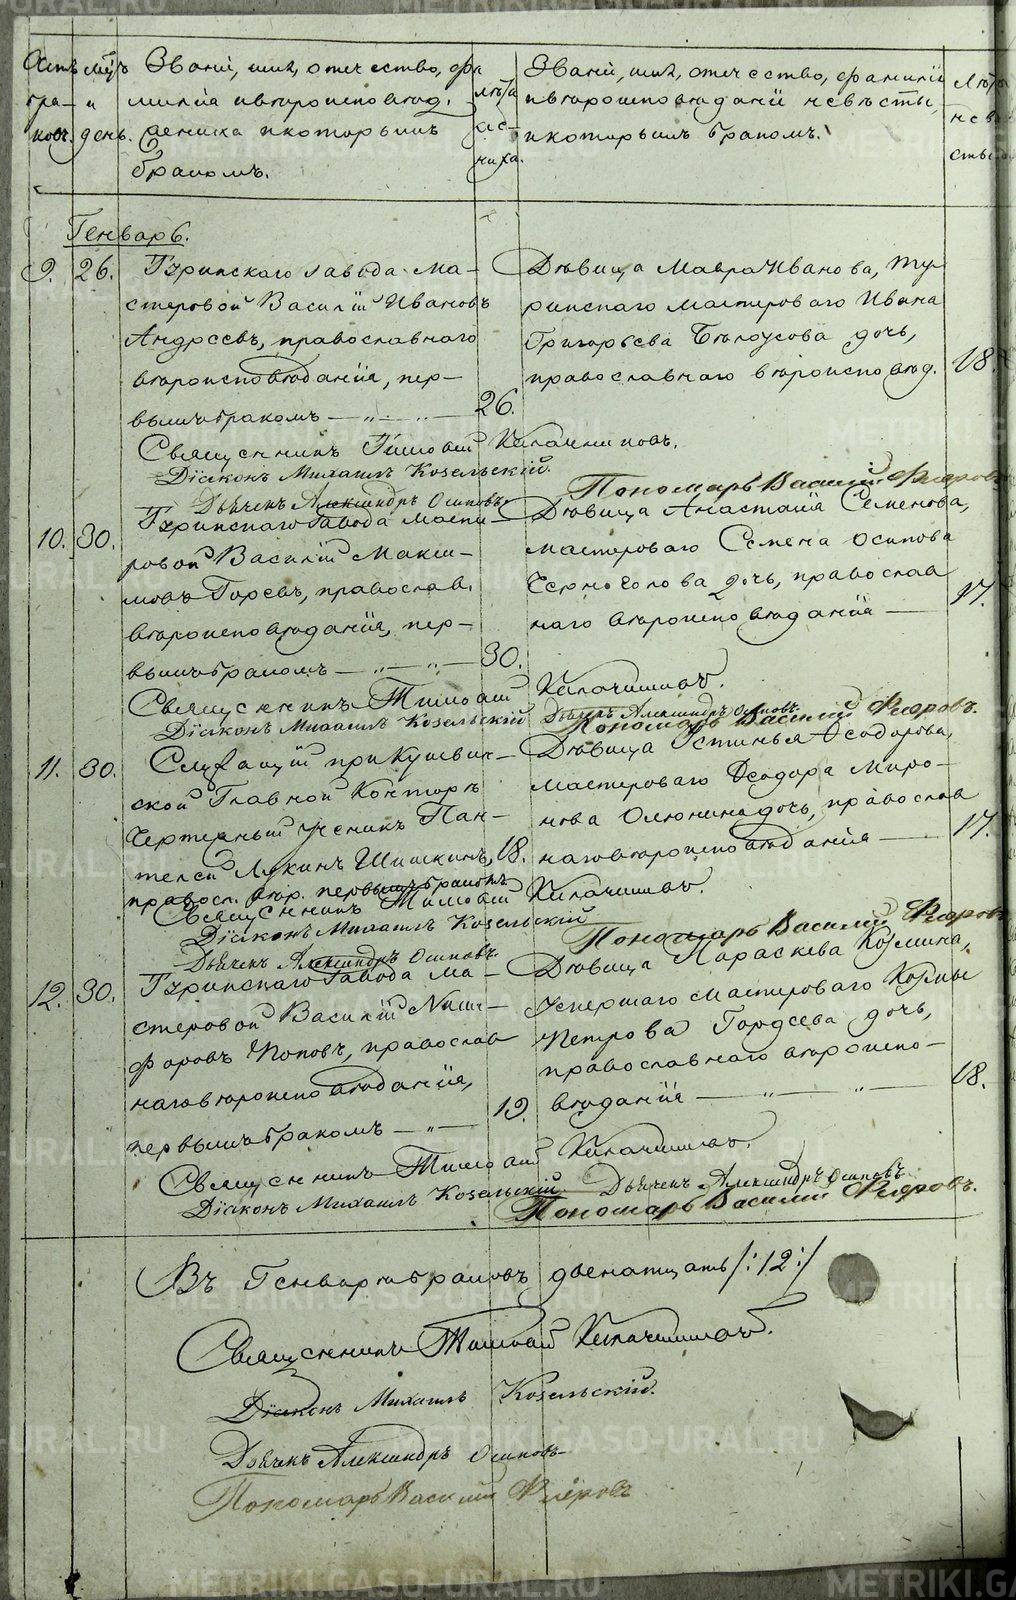 Званіе, имя, отчество, фа
милиа и вѣроисповѣд.
жениха и которымъ
бракомъ.
лѣта
же-
ниха.
Званіе, имя, отчество, фамилія
и вѣроисповѣданіе невѣсты,
и которымъ бракомъ.
лѣта
невѣ
сты.
мѣць
и
день.
Генварь.
9. 26.
Туринскаго завода ма-
стеровой Василій Ивановъ
Андреевъ, православнаго
вѣроисповѣданія, пер-
вымъ бракомъ — „ — „ — 26.
Дѣвица Мавра Иванова, ту-
ринскаго мастероваго Ивана
Григорьева Бѣлоусова дочь,
православнаго вѣроисповѣд. 18.
Священникъ Тимофей Калачниковъ.
Діаконъ Михаилъ Козельскій.
Дьячекъ Александръ Осиповъ.
Пономарь Василій Флёровъ
10. 30.
Туринскаго Завода масте-
ровой Василій Макси-
мовъ Горевъ, православ.
вѣроисповѣданія, пер-
вымъ бракомъ — „ — „ — 30.
Дѣвица Анастасія Семенова,
мастероваго Семена Осипова
Черноголова дочь, православ
наго вѣроисповѣданія — 17.
Священникъ Тимофей Калачниковъ.
Діаконъ Михаилъ Козельскій
Дьячекъ Александръ Осиповъ.
Пономарь Василій Флёровъ.
11. 30.
Служащій при Кушвин-
ской Главной Конторѣ
Чертежный ученикъ Пан-
телей Лукинъ Шишкинъ, 18.
правосл. вѣр. первымъ бракомъ
Дѣвица Устинья Ѳеодорова,
мастероваго Ѳеодора Миро-
нова Олюнина дочь, православ
наго вѣроисповѣданія — 17.
Священникъ Тимофей Калачниковъ.
Діаконъ Михаилъ Козельскій
Дьячекъ Александръ Осиповъ.
Пономарь Василій Флёровъ
12. 30.
Туринскаго Завода ма-
стеровой Василій Ники-
форовъ Поповъ, православ
наго вѣроисповѣданія,
первымъ бракомъ — „ — 19.
Дѣвица Параскева Козмина,
умершаго мастероваго Козмы
Петрова Гордѣева дочь,
православнаго вѣроиспо-
вѣданія — „ — „ — 18.
Священникъ Тимофей Калачниковъ.
Діаконъ Михаилъ Козельскій
Дьячекъ Александръ Осиповъ.
Пономарь Василій Флёровъ.
Въ Генварѣ браковъ двенатцать /:12:/
Священникъ Тимофей Калачниковъ.
Діаконъ Михаилъ Козельскій.
Дьячекъ Александръ Осиповъ
Пономарь Василій Флёровъ
METRIKI.GASO-URAL.RU